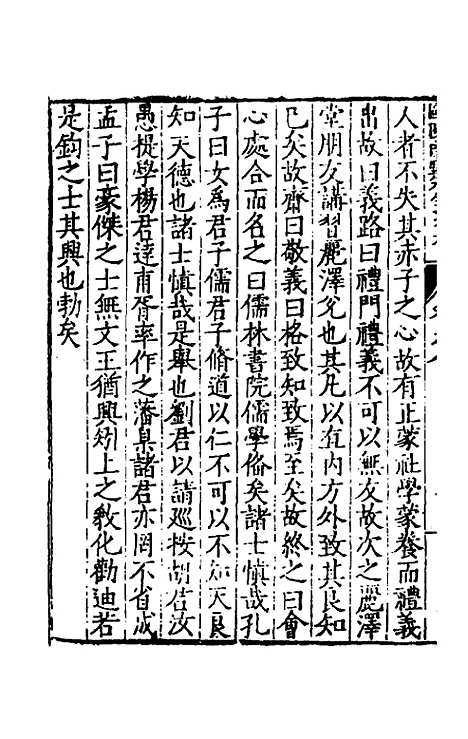 人者不失其赤子之心故有正蒙社學蒙養而禮義
出故曰義路曰禮門禮義不可以無友故次之麗澤
堂朋友講習麗澤兌也其凡以直內方外致其良知
已矣故齋曰敬義曰格致知致焉至矣故終之曰會
心處合而名之曰儒林書院儒學俻矣諸士慎哉孔
子曰女為君子儒君子脩道以仁不可以不知天良
知天德也諸士慎哉是舉也劉君以請巡按胡君汝
愚提學楊君達甫胥率作之藩臬諸君亦罔不省成
孟子曰豪傑之士無文王猶興矧上之教化勸迪若
是鈞之士其興也勃矣